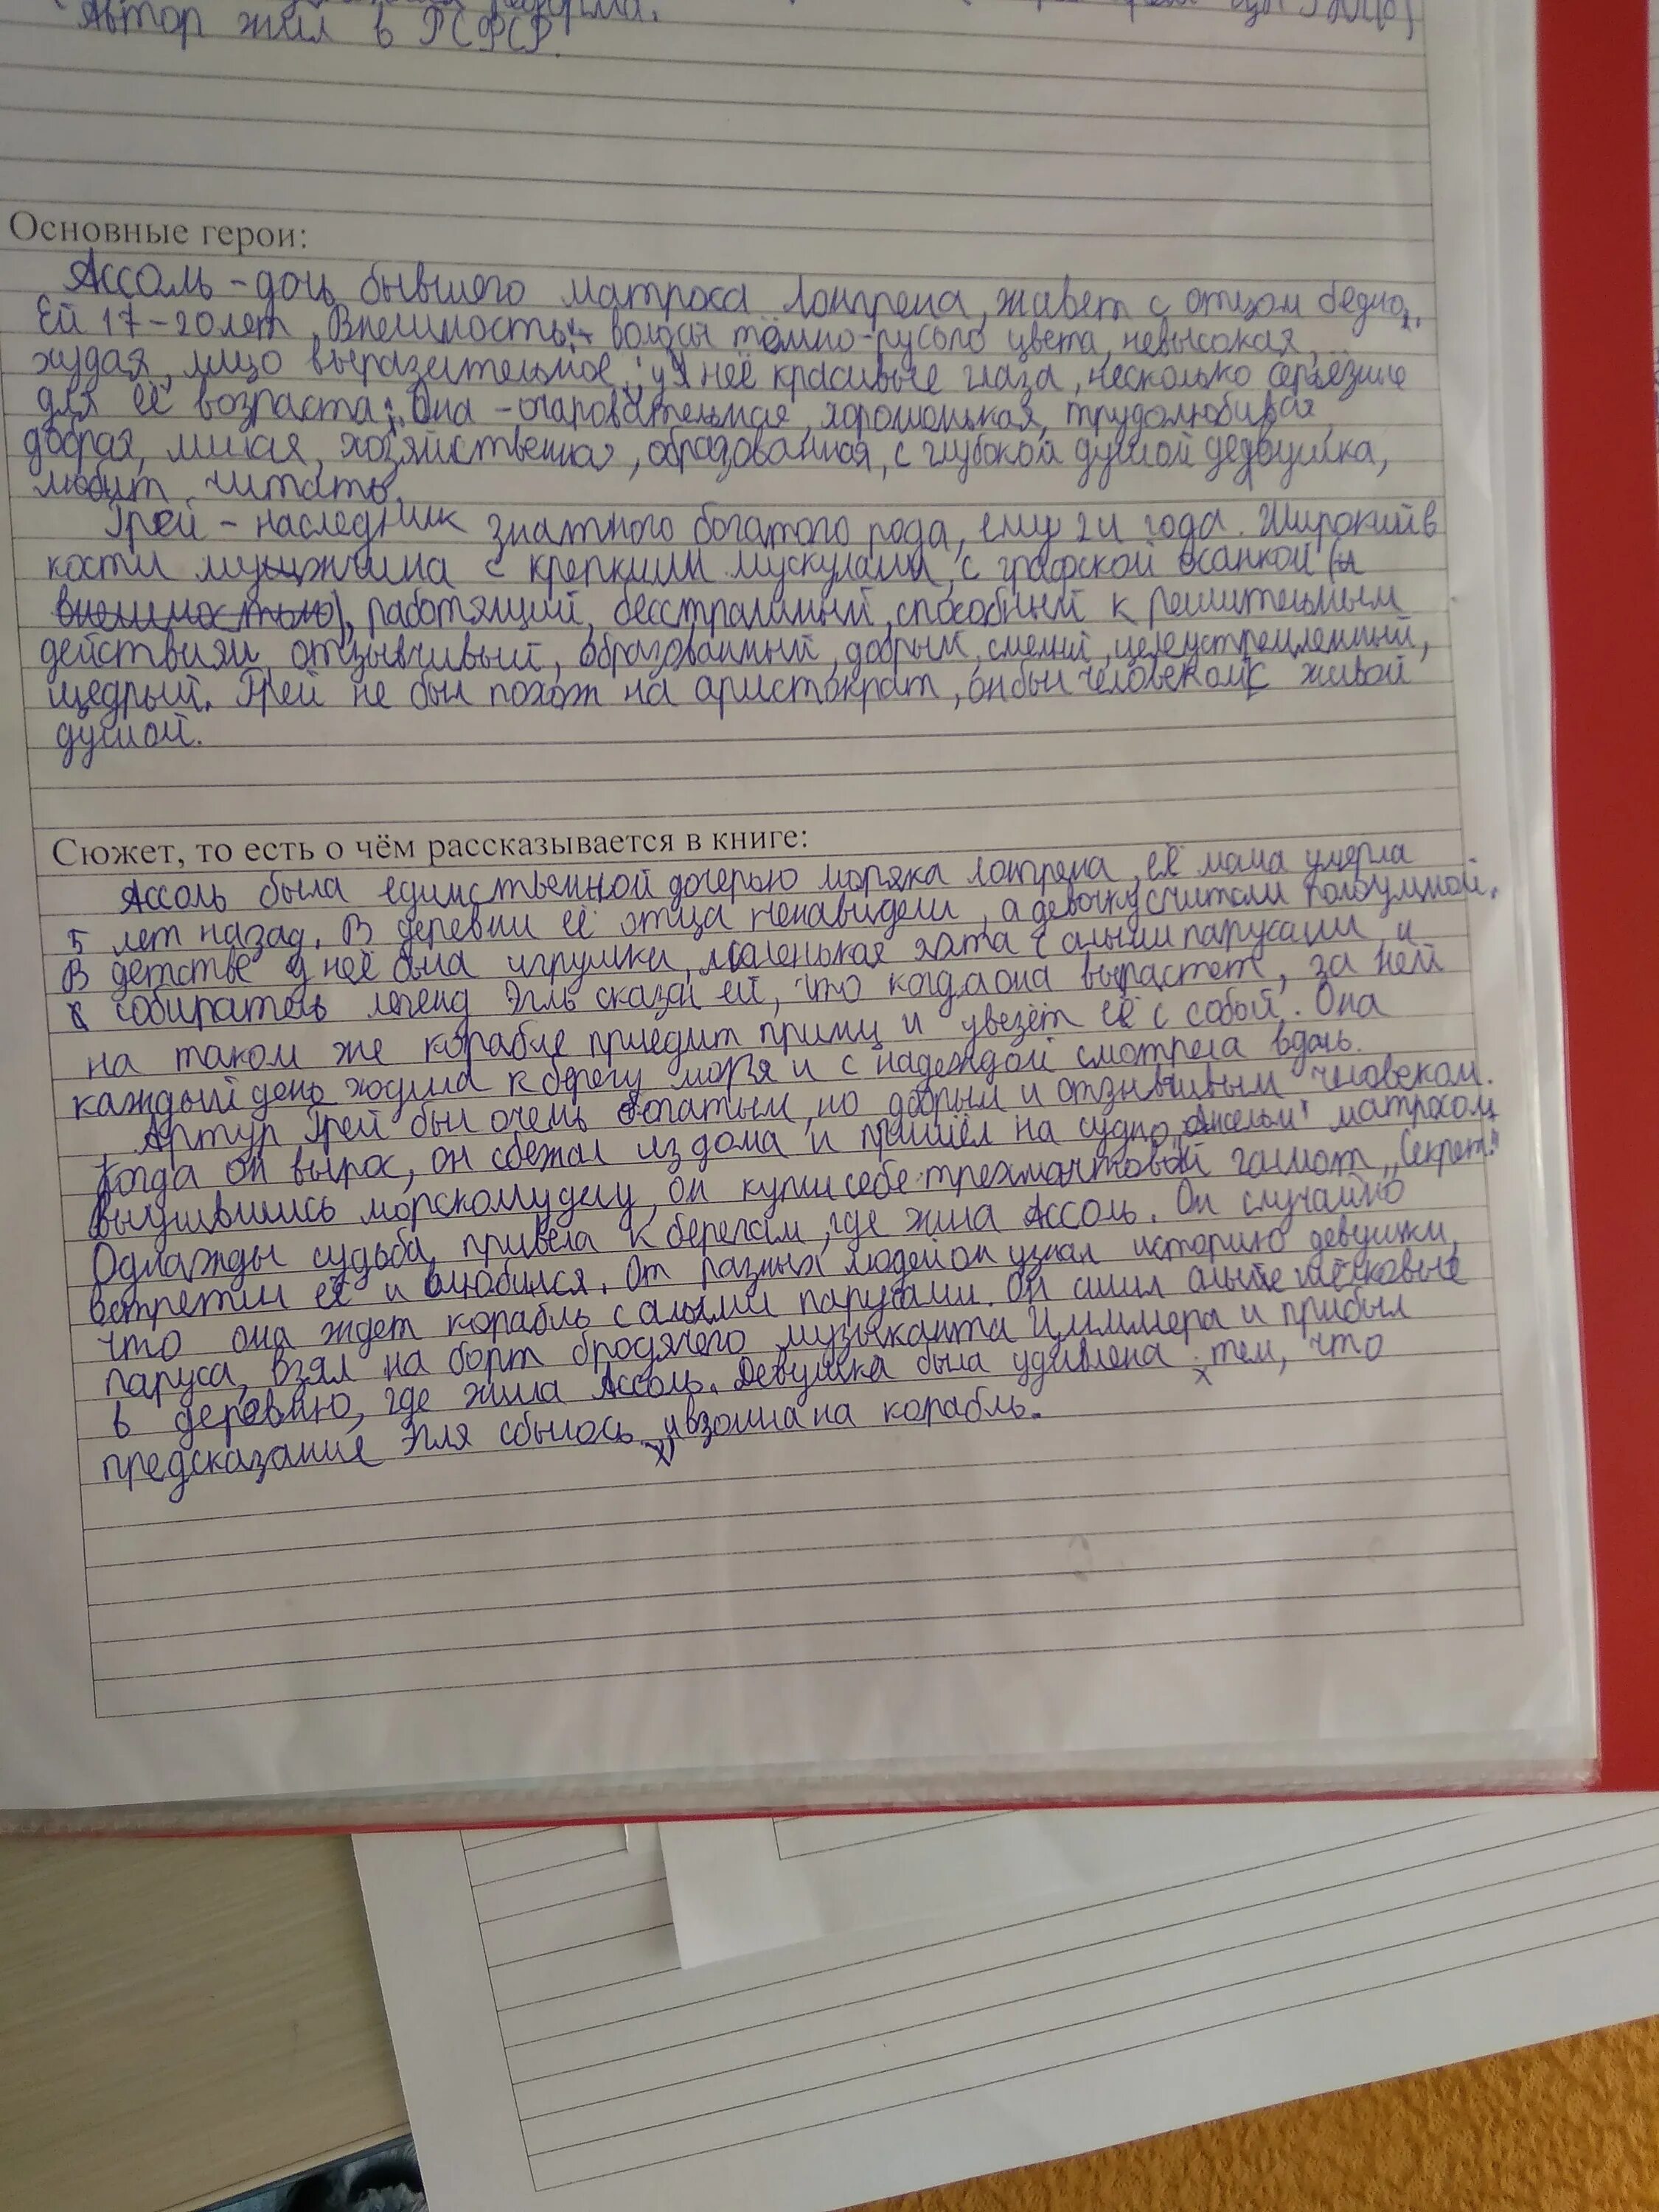 Автор жил в РСФСР.
Основные герои:
Ассоль - дочь бывшего матроса Лонгрена, живет с отцом бедно.
Ей 17-20 лет. Внешность: волосы тёмно-русого цвета, невысокая,
худая, лицо выразительное; у неё красивые глаза, несколько серьёзные
для её возраста; она - очаровательная, хорошенькая, трудолюбивая,
добрая, милая, хозяйственная, образованная, с глубокой душой девушка,
любит читать.
Грей - наследник знатного богатого рода, ему 24 года. Широкий в
кости мужчина с крепкими мускулами, с графской осанкой (и
внешностью), работящий, бесстрашный, способный к решительным
действиям, отзывчивый, образованный, добрый, смелый, целеустремленный,
щедрый. Грей не был похож на аристократ, он был человеком с живой
душой.
Сюжет, то есть о чём рассказывается в книге:
Ассоль была единственной дочерью моряка Лонгрена, её мама умерла
5 лет назад. В деревни её отца ненавидели, а девочку считали полоумной.
В детстве у неё была игрушка, маленькая яхта с алыми парусами, и
собиратель легенд Эгль сказал ей, что когда она вырастет, за ней
на таком же корабле приедит принц и увезёт её с собой. Она
каждый день ходила к берегу моря и с надеждой смотрела вдаль.
Артур Грей был очень богатым, но добрым и отзывчивым человеком.
Когда он вырос, он сбежал из дома и пришёл на судно „Ансельм" матросом
выучившись морскому делу, он купил себе трехмачтовый галиот „Секрет".
Однажды судьба привела к берегам, где жила Ассоль. Он случайно
встретил её и влюбился. От разных людей он узнал историю девушки,
что она ждет корабль с алыми парусами. Он сшил алые шёлковые
паруса, взял на борт бродячего музыканта Циммера и прибыл
в деревню, где жила Ассоль. Девушка была удивлена тем, что
предсказание Эгля сбылось, и взошла на корабль.